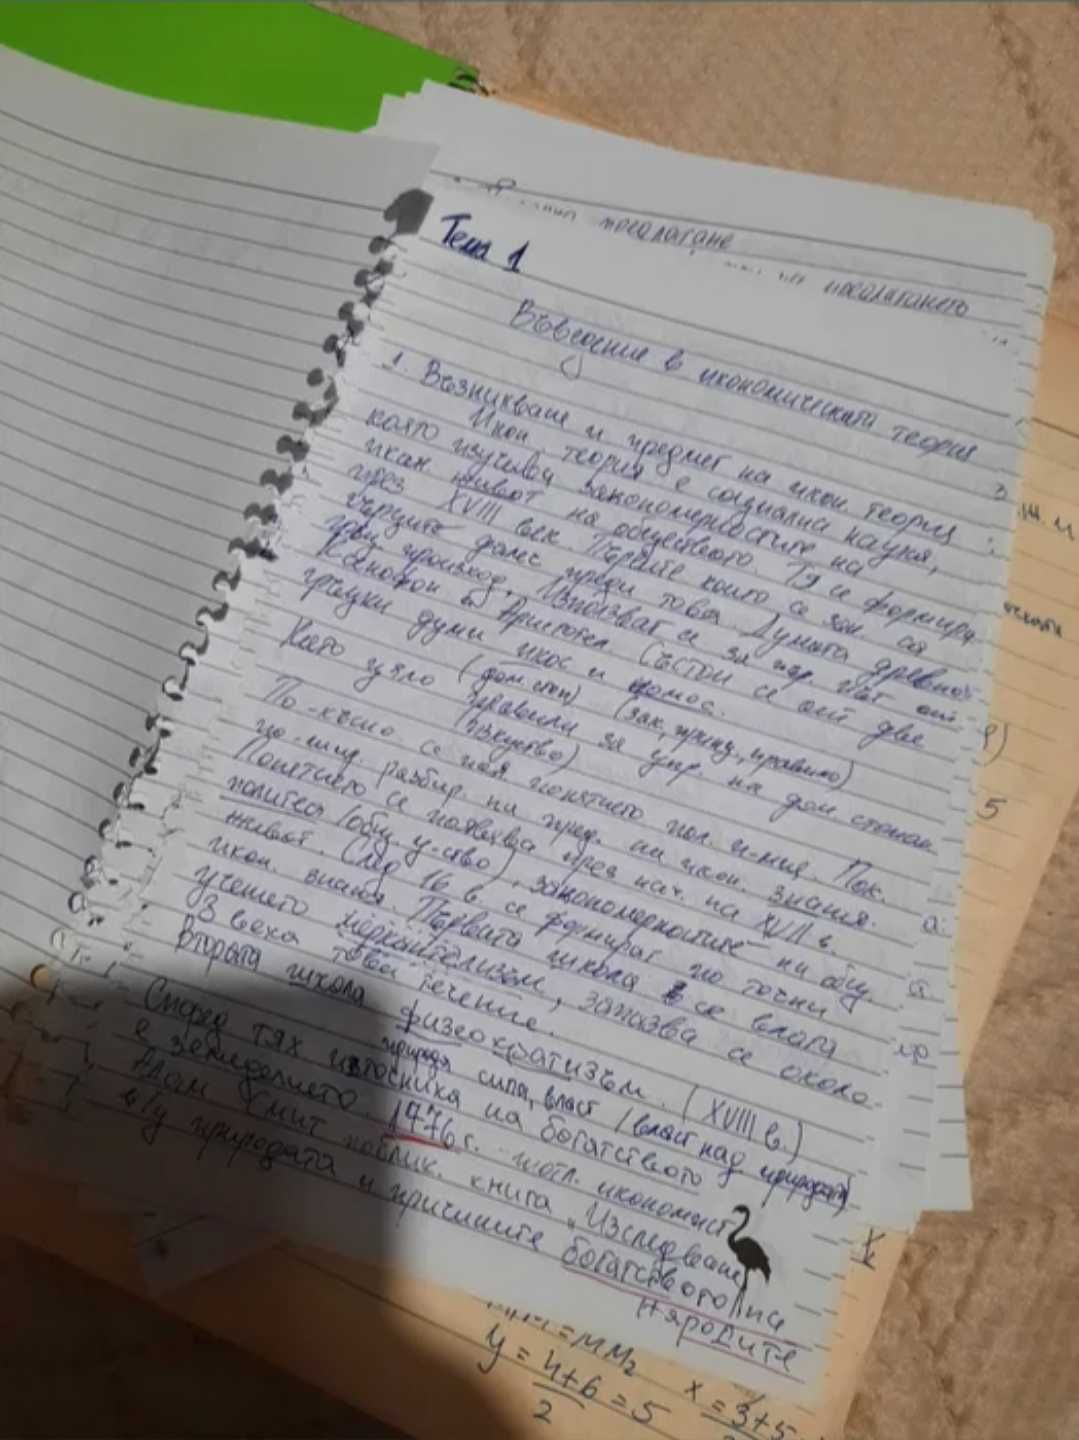 посалагане
посалагането
Тема 1
Въведение в икономическата теория
1. Възникване и предмет на икон. теория
Икон. теория е социална наука,
която изучава закономерностите на
икон. живот на обществото. Тя се формира
през XVIII век. Първите които са
гърците далеч преди това. Думата
произход. Използват се за
Ксенофон и Аристотел. Състои се от две
гръцки думи икос и номос.
(дом. стоп) (зак, принц, правило)
Като цяло правила за упр. на дом. стопан.
(изкуство)
По-късно се поя понятието пол. и-мия. Пок.
по-шир. разбир. на пред. на икон. знания.
Понятието се появява през нач. на XVII в.
политеа (общ. у-ство), закономерностите на общ.
живот. След 16 в. се формират по точни
икон. знания. Първата школа се влага
учението меркантилизъм, запазва се около
3 века това течение.
Втората школа физеократизъм. (XVIII в.)
природа сила, власт (власт над природата)
Според тях източника на богатството
е земеделието. 1776 г. шотл. икономист
Адам Смит публик. книга „Изследване
в/у природата и причините богатството на
народите
= MM₂
y = 4+6 = 5
2
x = 3+5
5